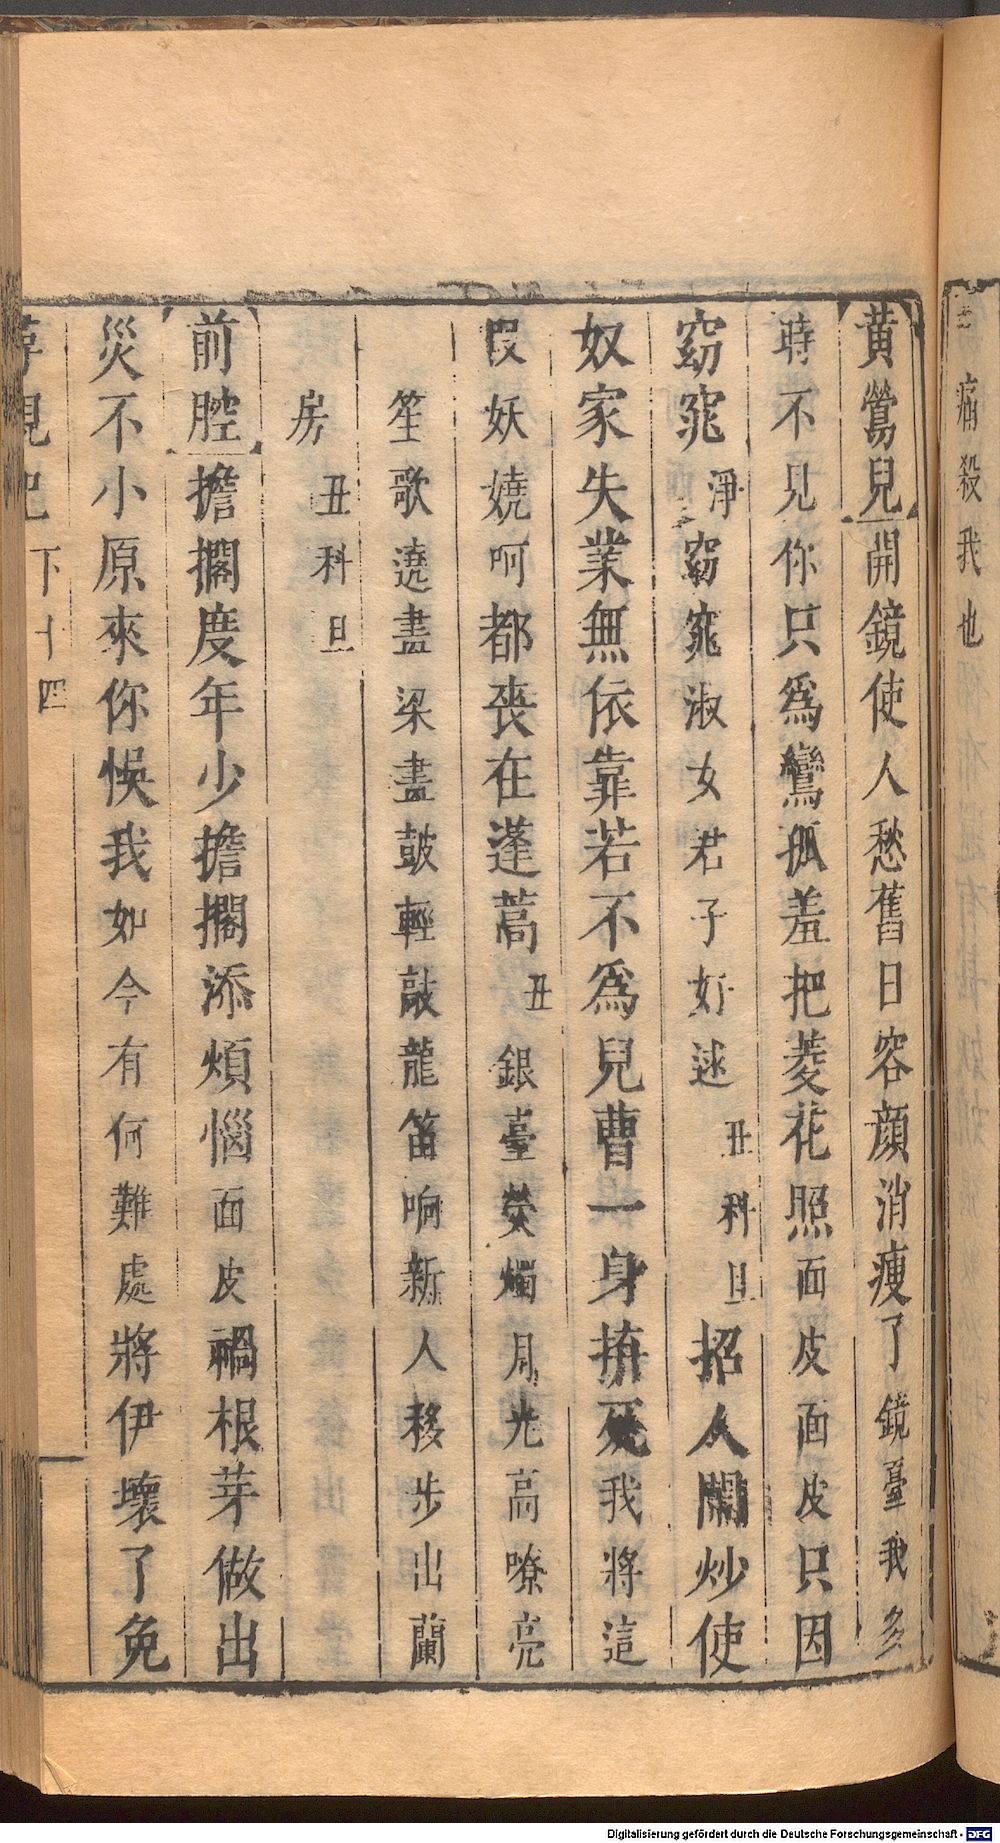 痛殺我也
黃鶯兒開鏡使人愁舊日容顏消瘦了鏡臺我多
時不見你只爲鸞孤羞把菱花照面皮面皮只因
窈窕淨窈窕淑女君子好逑丑科旦招人鬧炒使
奴家失業無依靠若不爲兒曹一身拚死我將這
段妖嬈呵都喪在蓬蒿丑銀臺熒燭月光高嘹亮
笙歌遶畫梁畫皷輕敲龍笛响新人移步出蘭
房丑科旦
前腔擔擱度年少擔擱添煩惱面皮禍根芽做出
災不小原來你悞我如今有何難處將伊壞了免
下十四
Digitalisierung gefördert durch die Deutsche Forschungsgemeinschaft - DFG